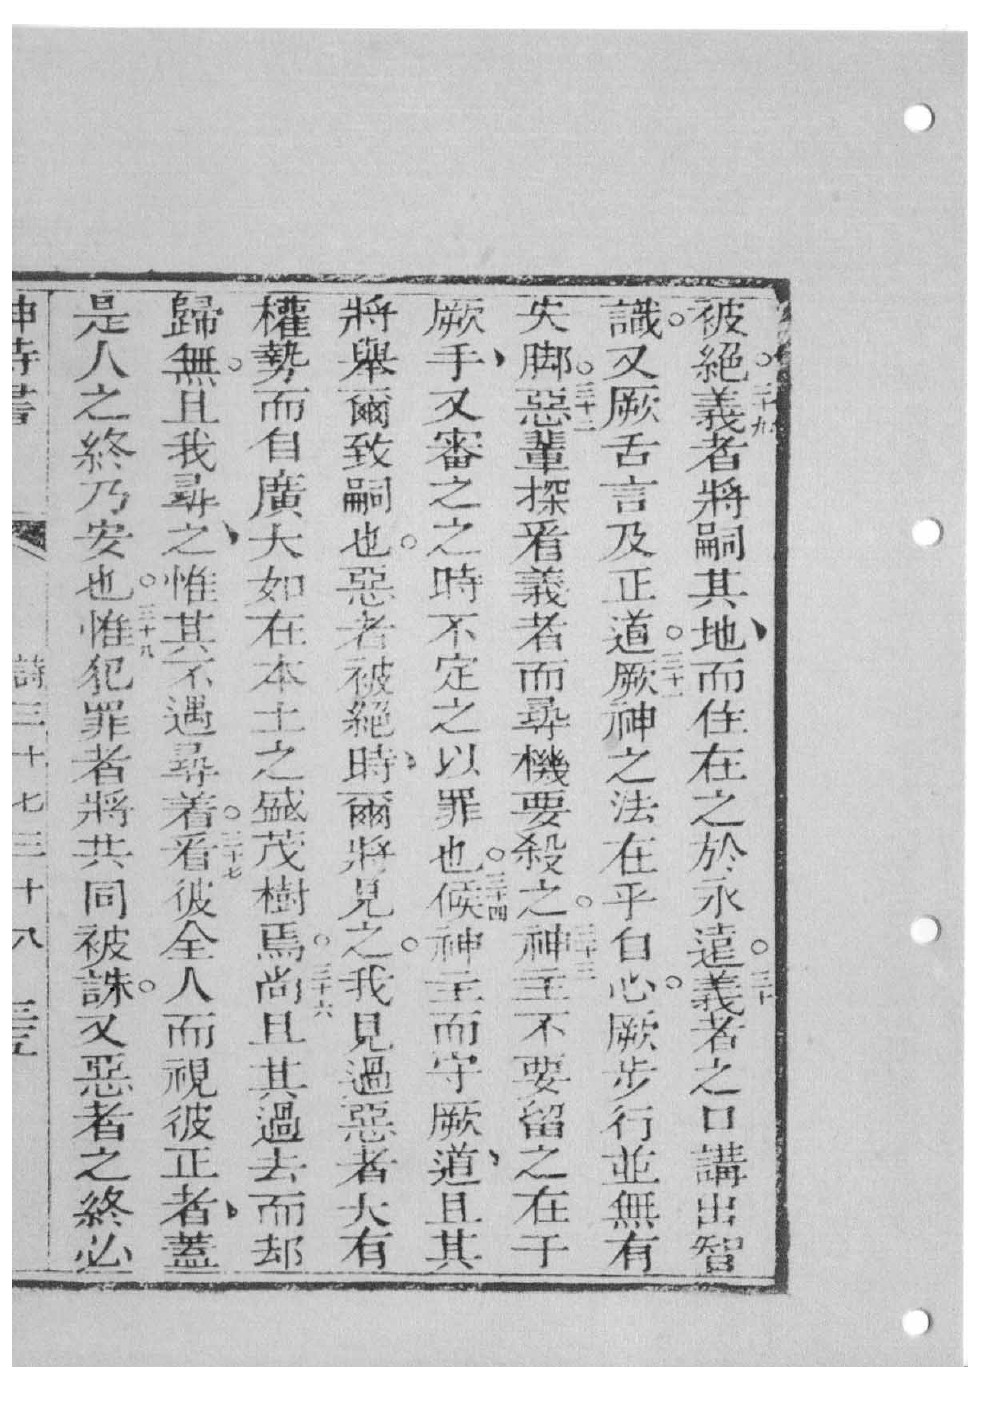 被絕○二十九義者將嗣其地、而住在之於永遠○三十義者之口講出智
識○又厥舌言及正道○三十一厥神之法在乎自心○厥步行並無有
失脚○三十二惡輩探看義者而尋機要殺之○三十三神主不要留之在于
厥手、又審之之時不定之以罪也○三十四候神主而守厥道、且其
將舉爾致嗣也○惡者被絕時、爾將見之○我見過惡者大有
權勢而自廣大如在本土之盛茂樹焉○三十六尚且其過去而却
歸無○且我尋之、惟其不遇尋着○三十七看彼全人而視彼正者、蓋
是人之終乃安也○三十八惟犯罪者將共同被誅○又惡者之終必
神詩書 詩三十七三十八